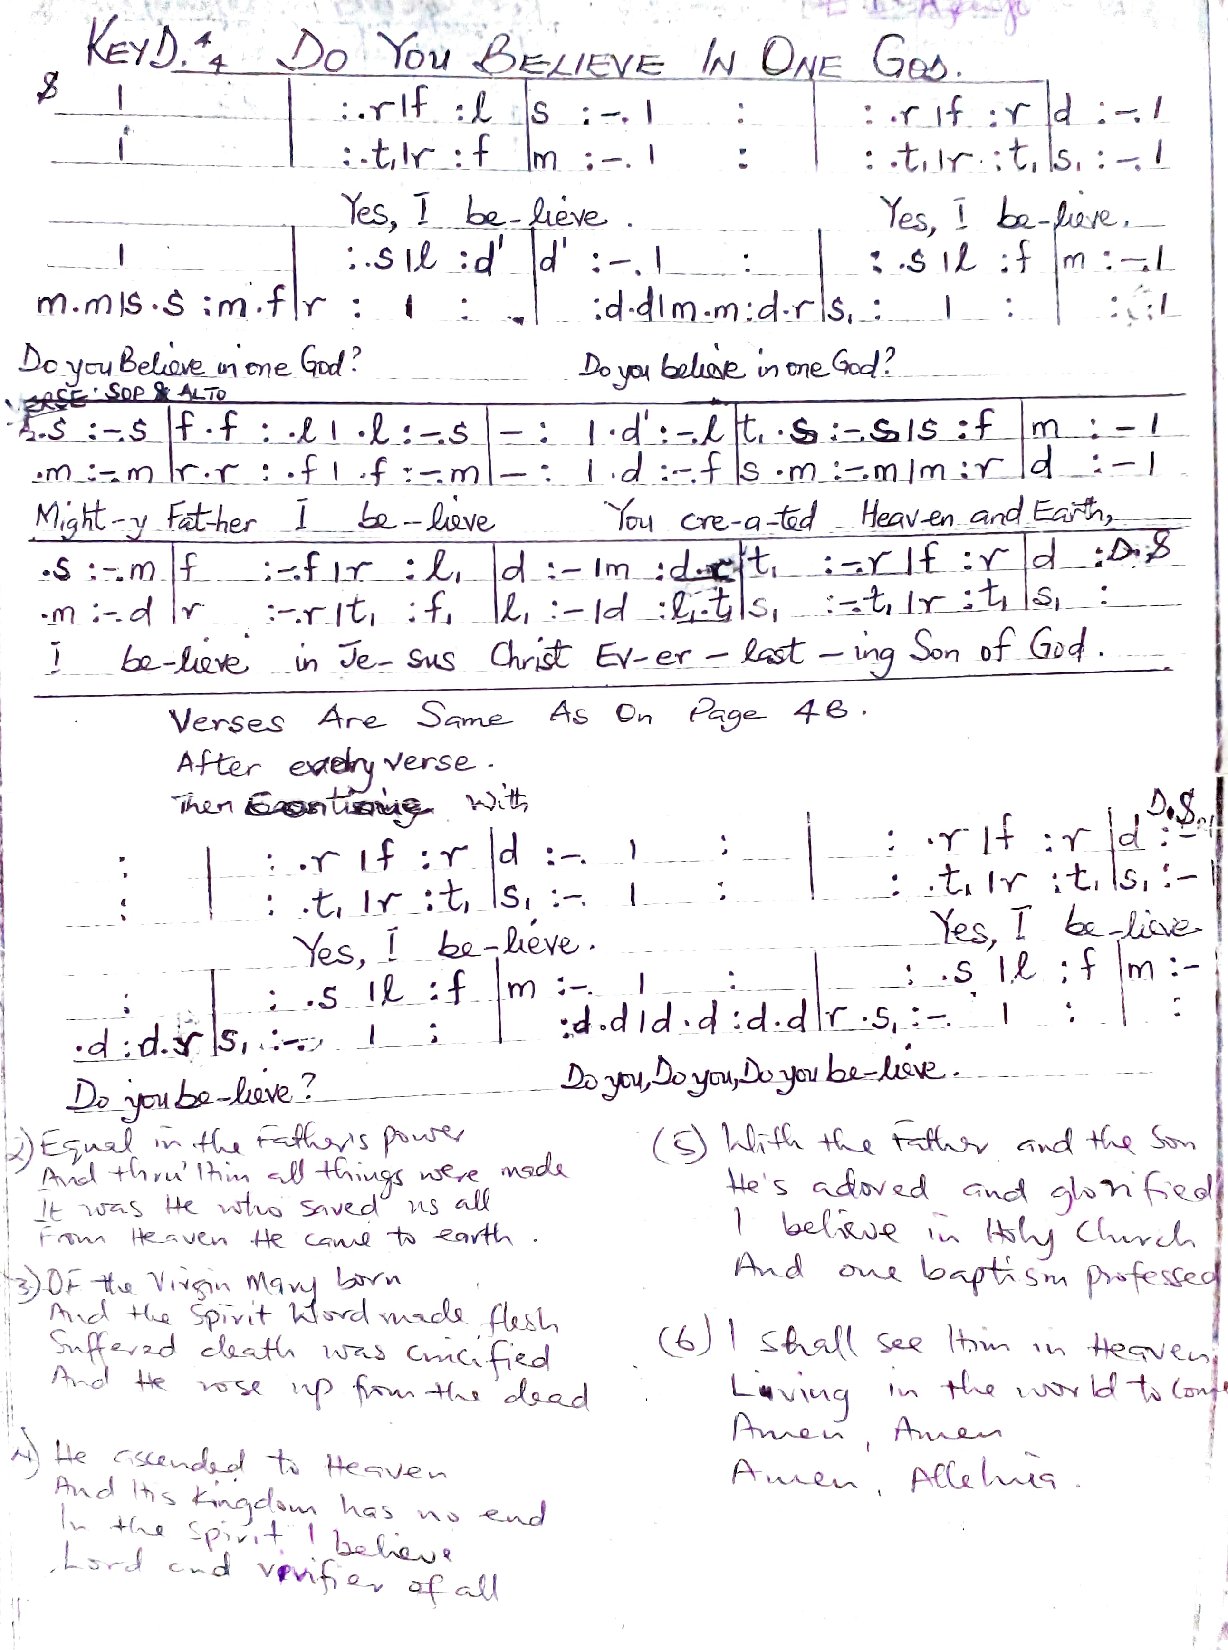 KEY D. 4/4 DO YOU BELIEVE IN ONE GOD.
| | :.r|f :l |s :-.| : | : .r|f :r |d :-.|
| | :.t₁|r :f |m :-.| : | : .t₁|r.:t₁|s₁ :-.|
Yes, I be-lieve. Yes, I be-lieve.
| | :.s|l :d' |d' :-.| : | : .s|l :f |m :-.|
m.m|s.s :m.f|r : | : . | :d.d|m.m:d.r|s₁ : | : | : :|
Do you Believe in one God? Do you believe in one God?
VERSE: SOP & ALTO
.s :-.s |f.f : .l | .l :-.s |- : | .d' :-.l |t₁ .s :-.s|s :f |m : -|
.m :-.m |r.r : .f | .f :-.m |- : | .d :-.f |s .m :-.m|m :r |d : -|
Might-y Fat-her I be-lieve You cre-a-ted Heav-en and Earth,
.s :-.m |f :-.f|r :l₁ |d :-|m :d.r|t₁ :-.r|f :r |d :D.S
.m :-.d |r :-.r|t₁ :f₁ |l₁ :-|d :l₁.t₁|s₁ :-.t₁|r :t₁ |s₁ :
I be-lieve in Je-sus Christ Ev-er-last-ing Son of God.
Verses Are Same As On Page 4B.
After every verse.
Then Continue With
D.S.
: | : .r |f :r |d :-. | : | : .r |f :r |d :-
: | : .t₁ |r :t₁ |s₁ :-. | : | : .t₁ |r :t₁ |s₁ :-|
Yes, I be-lieve. Yes, I be-lieve
: | : .s |l :f |m :-. | : | : .s |l :f |m :-
.d :d.r |s₁ :-. | : :d.d|d.d :d.d|r .s₁ :-. | : | :
Do you be-lieve? Do you, Do you, Do you be-lieve.
2) Equal in the Father's power
And thru' Him all things were made
It was He who saved us all
From Heaven He came to earth.
3) Of the Virgin Mary born
And the Spirit Word made flesh
Suffered death was crucified
And He rose up from the dead
4) He ascended to Heaven
And His Kingdom has no end
In the Spirit I believe
Lord and vivifier of all
(5) With the Father and the Son
He's adored and glorified
I believe in Holy Church
And one baptism professed
(6) I shall see Him in Heaven
Living in the world to come
Amen, Amen
Amen, Alleluia.